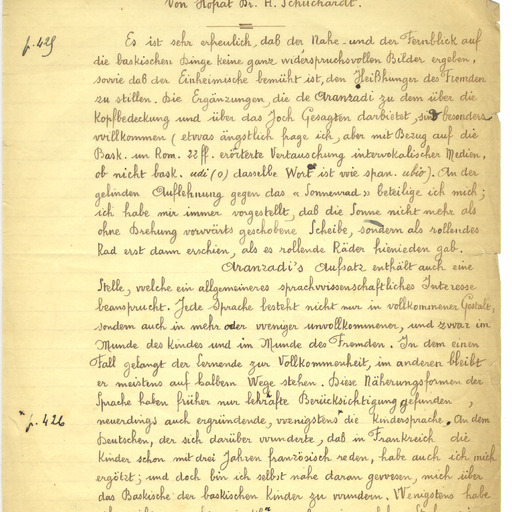 Von Hofrat Dr. H. Schuchardt.
p. 425
Es ist sehr erfreulich, daß der Nahe- und der Fernblick auf
die baskischen Dinge keine ganz widerspruchsvollen Bilder ergeben,
sowie daß der Einheimische bemüht ist, den Heißhunger des Fremden
zu stillen. Die Ergänzungen, die de Aranzadi zu dem über die
Kopfbedeckung und über das Joch Gesagten darbietet, sind besonders
willkommen (etwas ängstlich frage ich, aber mit Bezug auf die
Bask. un Rom. 22 ff. erörterte Vertauschung intervokalischer Medien,
ob nicht bask. udi (o) dasselbe Wort ist wie span. ubio). An der
gelinden Auflehnung gegen das «Sonnenrad» beteilige ich mich;
ich habe mir immer vorgestellt, daß die Sonne nicht mehr als
ohne Drehung vorwärts geschobene Scheibe, sondern als rollendes
Rad erst dann erschien, als es rollende Räder hienieden gab.
Aranzadi's Aufsatz enthält auch eine
Stelle, welche ein allgemeineres sprachwissenschaftliches Interesse
beansprucht. Jede Sprache besteht nicht nur in vollkommener Gestalt,
sondern auch in mehr oder weniger unvollkommener, und zwar im
Munde des Kindes und im Munde des Fremden. In dem einen
Fall gelangt der Lernende zur Vollkommenheit, im anderen bleibt
er meistens auf halbem Wege stehen. Diese Näherungsformen der
Sprache haben früher nur lehrhafte Berücksichtigung gefunden,
p. 426
neuerdings auch ergründende, wenigstens die Kindersprache. An dem
Deutschen, der sich darüber wunderte, daß in Frankreich die
Kinder schon mit drei Jahren französisch reden, habe auch ich mich
ergötzt; und doch bin ich selbst nahe daran gewesen, mich über
das Baskische der baskischen Kinder zu wundern. Wenigstens habe